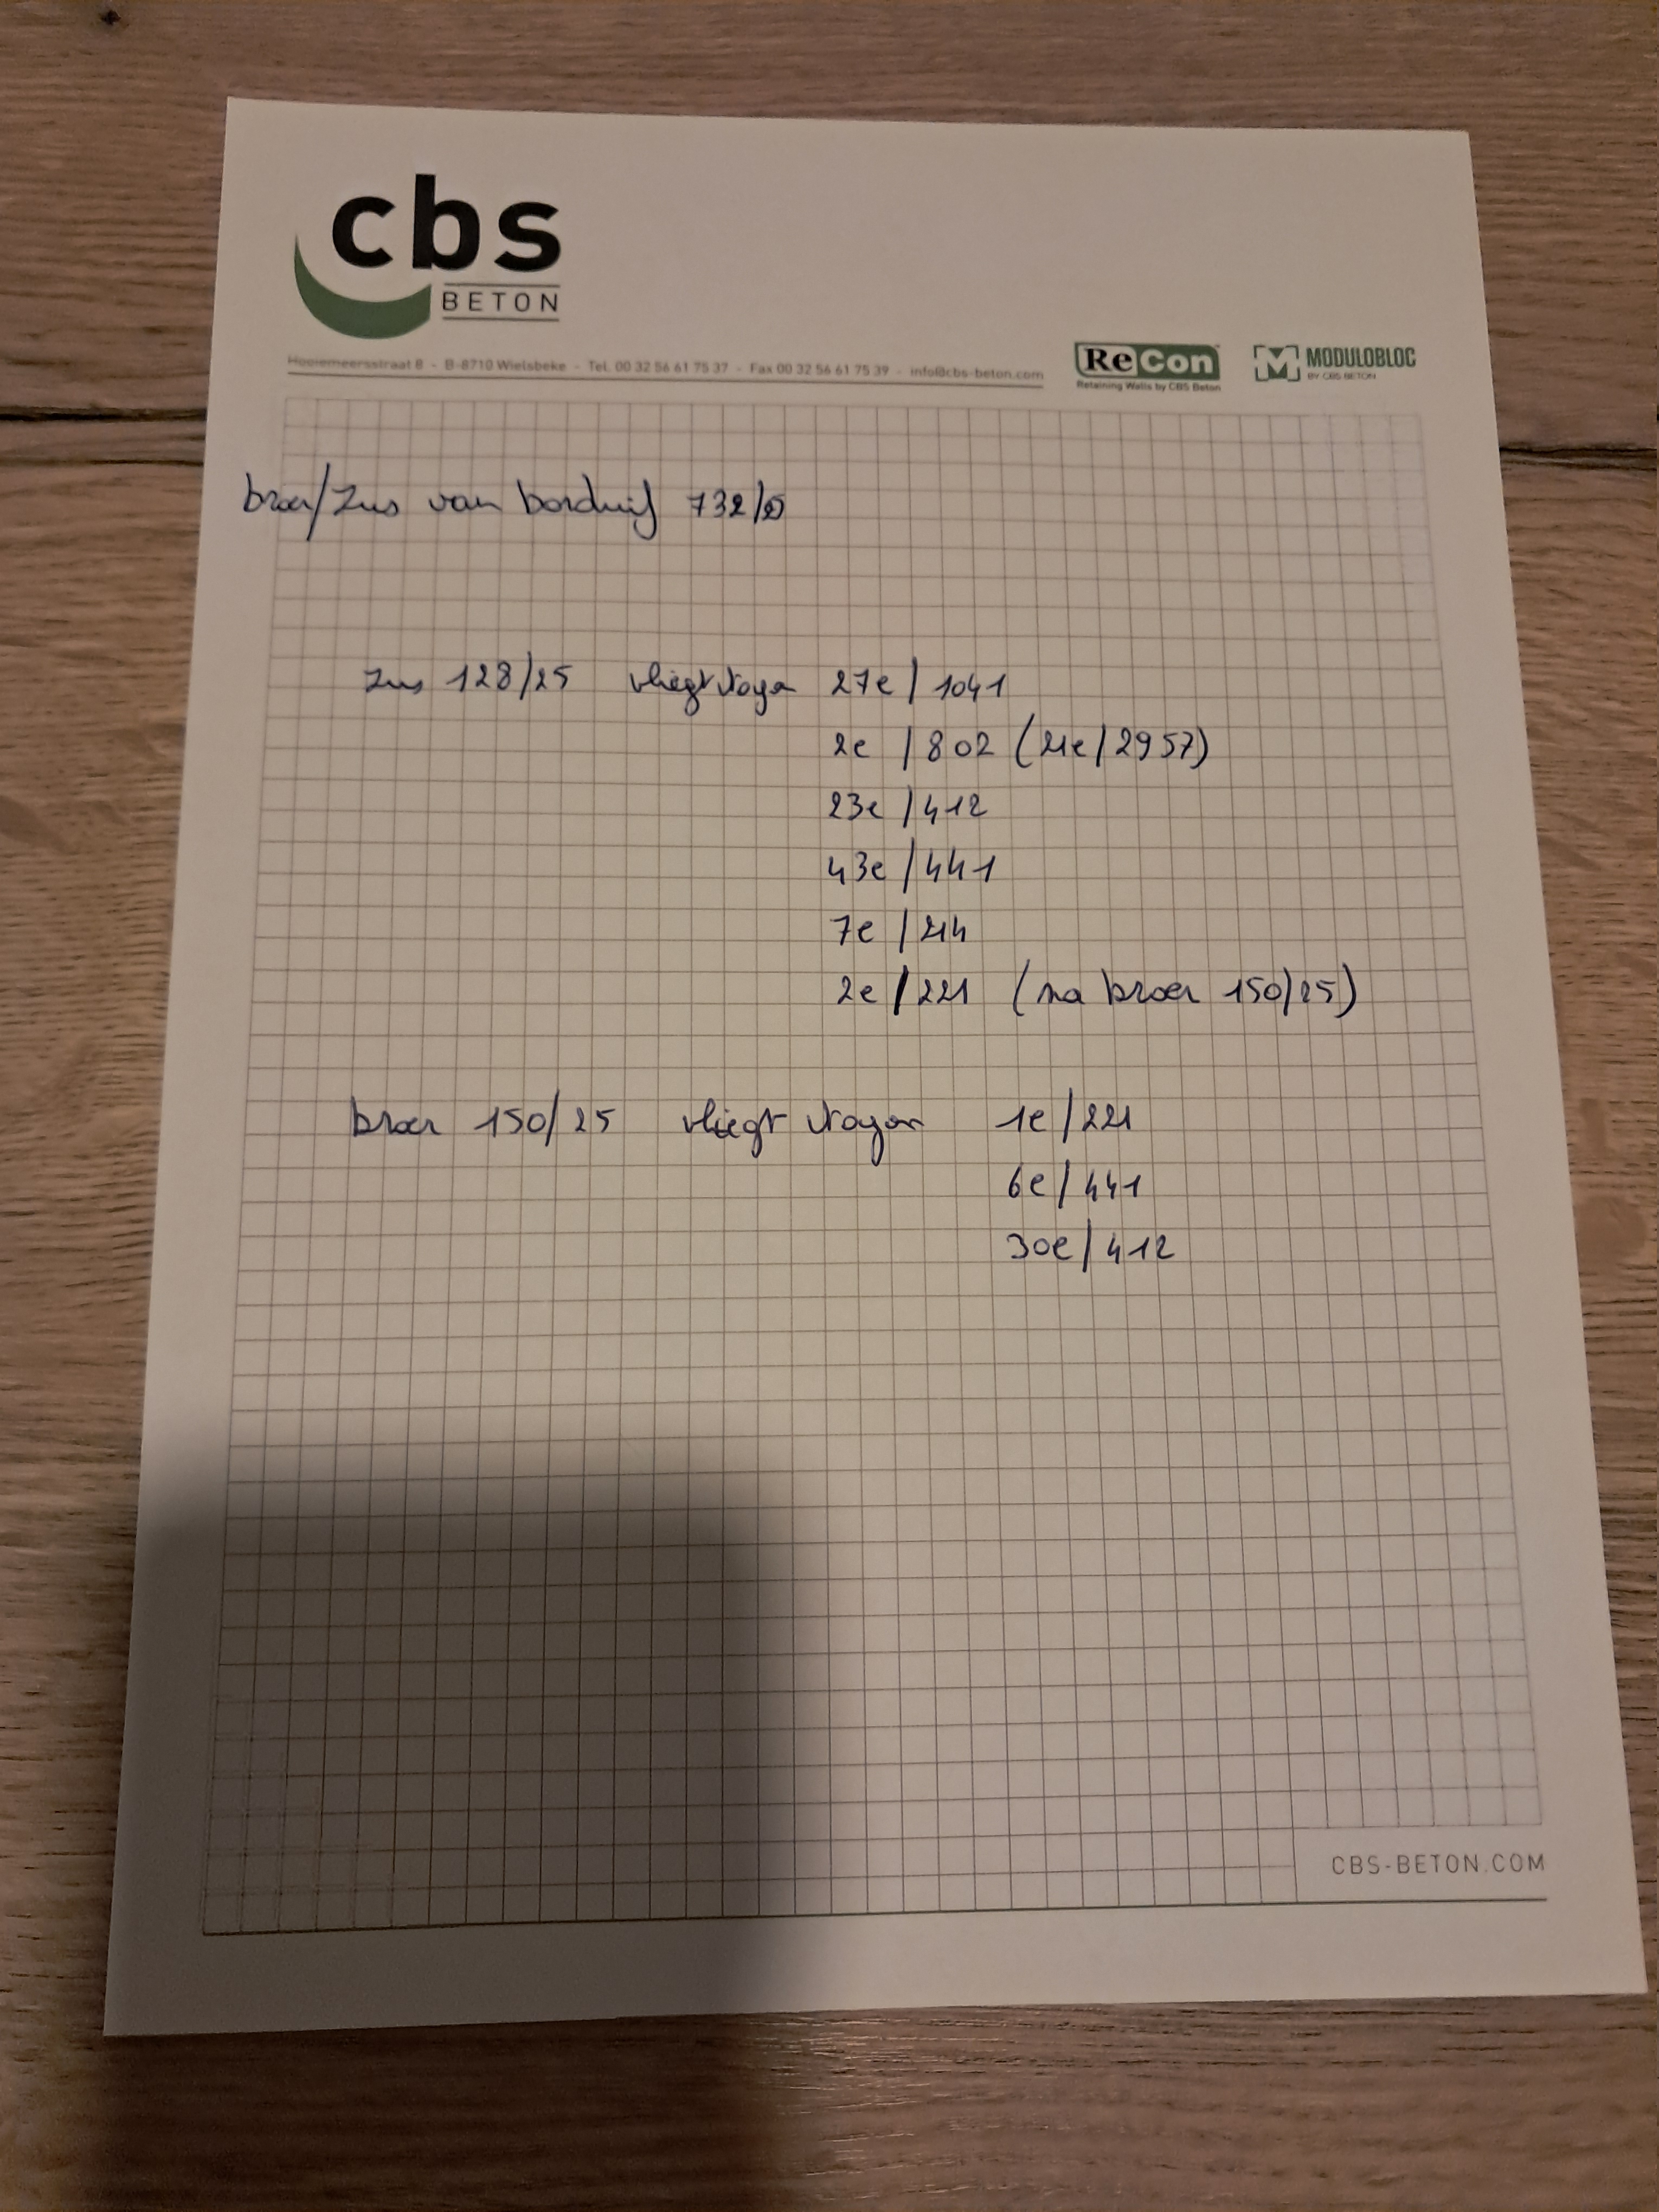 cbs
BETON
Hooiemeersstraat 8 - B-8710 Wielsbeke - Tel. 00 32 56 61 75 37 - Fax 00 32 56 61 75 39 - info@cbs-beton.com
ReCon
Retaining Walls by CBS Beton
MODULOBLOC
BY CBS BETON
broer/Zus van bonduif 732/
Zus 128/25 vliegt Noyon 27e / 1041
2e / 802 (21e/2957)
23e / 412
43e / 441
7e / 214
2e / 221 (na broer 150/25)
broer 150/25 vliegt Noyon 1e/221
6e/441
30e/412
CBS-BETON.COM